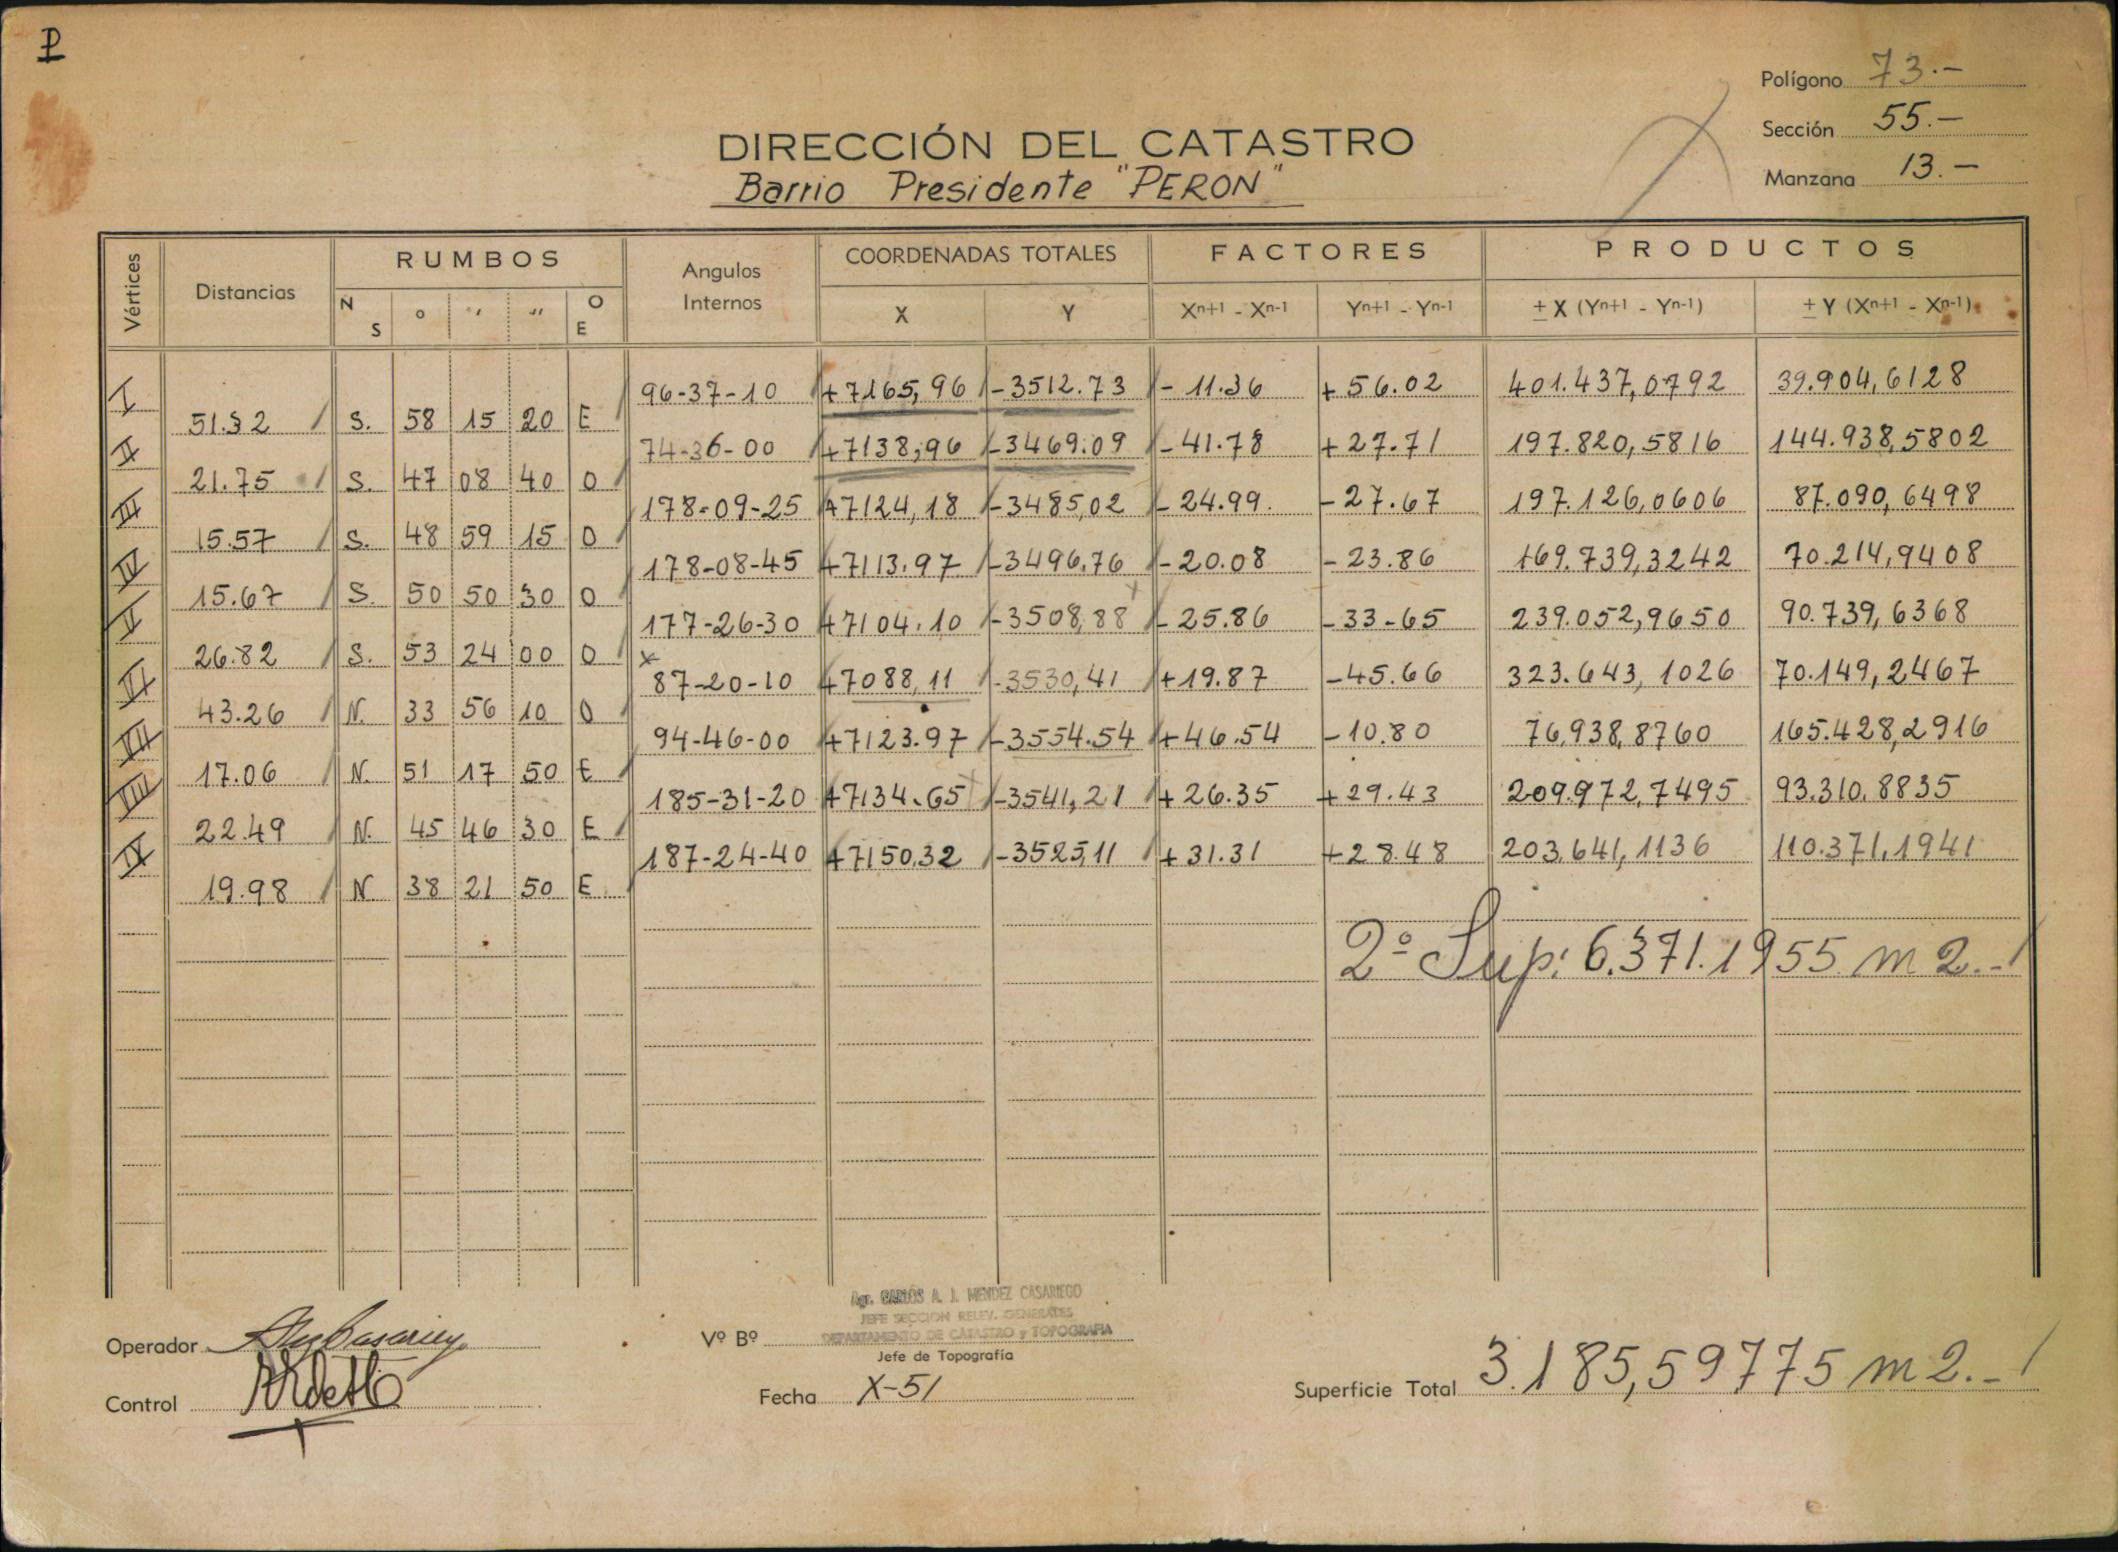 P
Polígono 73.-
Sección 55.-
Manzana 13.-
DIRECCIÓN DEL CATASTRO
Barrio Presidente "PERON"
Vértices Distancias RUMBOS Angulos Internos COORDENADAS TOTALES FACTORES PRODUCTOS
N S ° ' '' O E X Y Xn+1 - Xn-1 Yn+1 - Yn-1 ± X (Yn+1 - Yn-1) ± Y (Xn+1 - Xn-1)
I 96-37-10 +7165,96 -3512.73 -11.36 +56.02 401.437,0792 39.904,6128
51.32 S. 58 15 20 E
II 74-36-00 +7138,96 -3469.09 -41.78 +27.71 197.820,5816 144.938,5802
21.75 S. 47 08 40 O
III 178-09-25 +7124,18 -3485,02 -24.99. -27.67 197.126,0606 87.090,6498
15.57 S. 48 59 15 O
IV 178-08-45 +7113.97 -3496,76 -20.08 -23.86 169.739,3242 70.214,9408
15.67 S. 50 50 30 O
V 177-26-30 +7104.10 -3508,88 -25.86 -33-65 239.052,9650 90.739,6368
26.82 S. 53 24 00 O
VI 87-20-10 +7088,11 -3530,41 +19.87 -45.66 323.643,1026 70.149,2467
43.26 N. 33 56 10 O
VII 94-46-00 +7123.97 -3554.54 +46.54 -10.80 76,938,8760 165.428,2916
17.06 N. 51 17 50 E
VIII 185-31-20 +7134.65 -3541,21 +26.35 +29.43 209.972,7495 93.310,8835
22.49 N. 45 46 30 E
IX 187-24-40 +7150.32 -3525,11 +31.31 +28.48 203.641,1136 110.371,1941
19.98 N. 38 21 50 E
2º Sup: 6.371.1955 m2.-
Agr. CARLOS A. J. MENDEZ CASARIEGO
JEFE SECCION RELEV. GENERALES
Operador Vº Bº DEPARTAMENTO DE CATASTRO y TOPOGRAFIA
Jefe de Topografía
Control Fecha X-51 Superficie Total 3.185,59775 m2.-